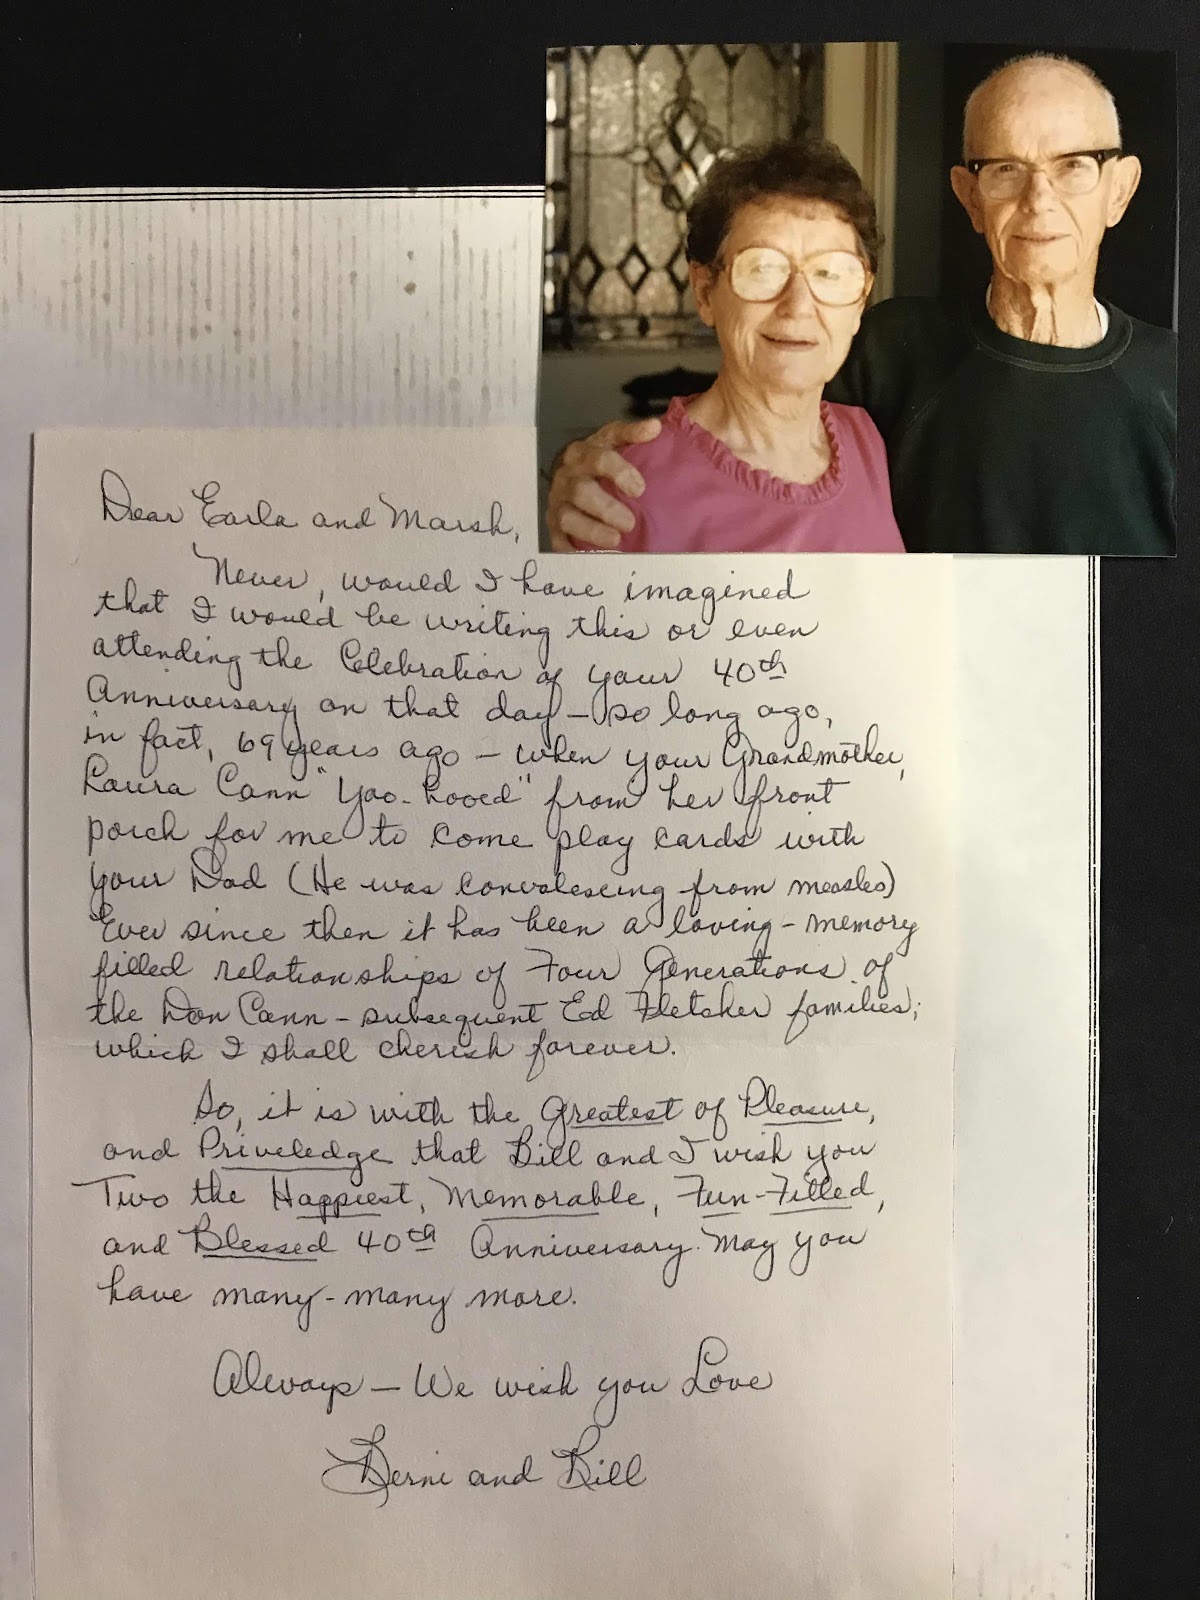 Dear Earla and Marsh,
Never, would I have imagined
that I would be writing this or even
attending the Celebration of your 40th
Anniversary on that day – so long ago,
in fact, 69 years ago – when your Grandmother,
Laura Cann "Yoo-hooed" from her front
porch for me to come play cards with
your Dad (He was convalescing from measles)
Ever since then it has been a loving-memory
filled relationships of Four Generations of
the Don Cann – subsequent Ed Fletcher families;
which I shall cherish forever.
So, it is with the Greatest of Pleasure,
and Priveledge that Bill and I wish you
Two the Happiest, Memorable, Fun-Filled,
and Blessed 40th Anniversary. May you
have many-many more.
Always – We wish you Love
Berni and Bill